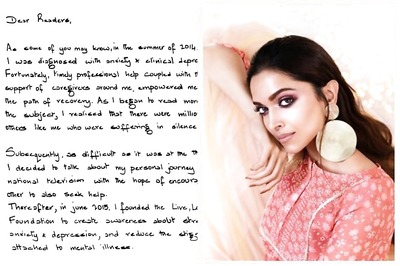 Dear Readers,
As some of you may know, in the summer of 2014.
I was diagnosed with anxiety & clinical depre
Fortunately, timely professional help coupled with t
support of caregivers around me, empowered me
the path of recovery. As I began to read mor
the subject, I realised that there were millio
others like me who were suffering in silence
Subsequently, as difficult as it was at the t
I decided to talk about my personal journey
national television with the hope of encoura
other to also seek help.
Thereafter, in june 2015. I founded the Live, L
Foundation to create awareness about stre
anxiety & depression, and reduce the stig
attached to mental illness.